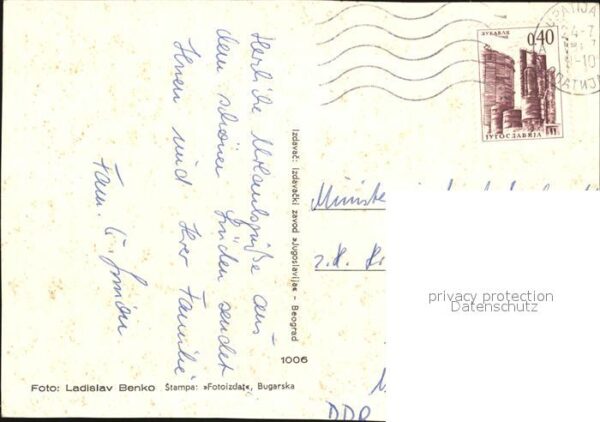 Herzliche Urlaubsgrüße aus
dem schönen Süden sendet
Ihnen und Ihrer Familie
Fam.
Izdavač: Izdavački zavod »Jugoslavija« - Beograd
1006
Foto: Ladislav Benko Štampa: »Fotoizdat«, Bugarska
ЛУКАВАЦ
0,40
ЈУГОСЛАВИЈА
24-7
z.H.
DDR
privacy protection
Datenschutz